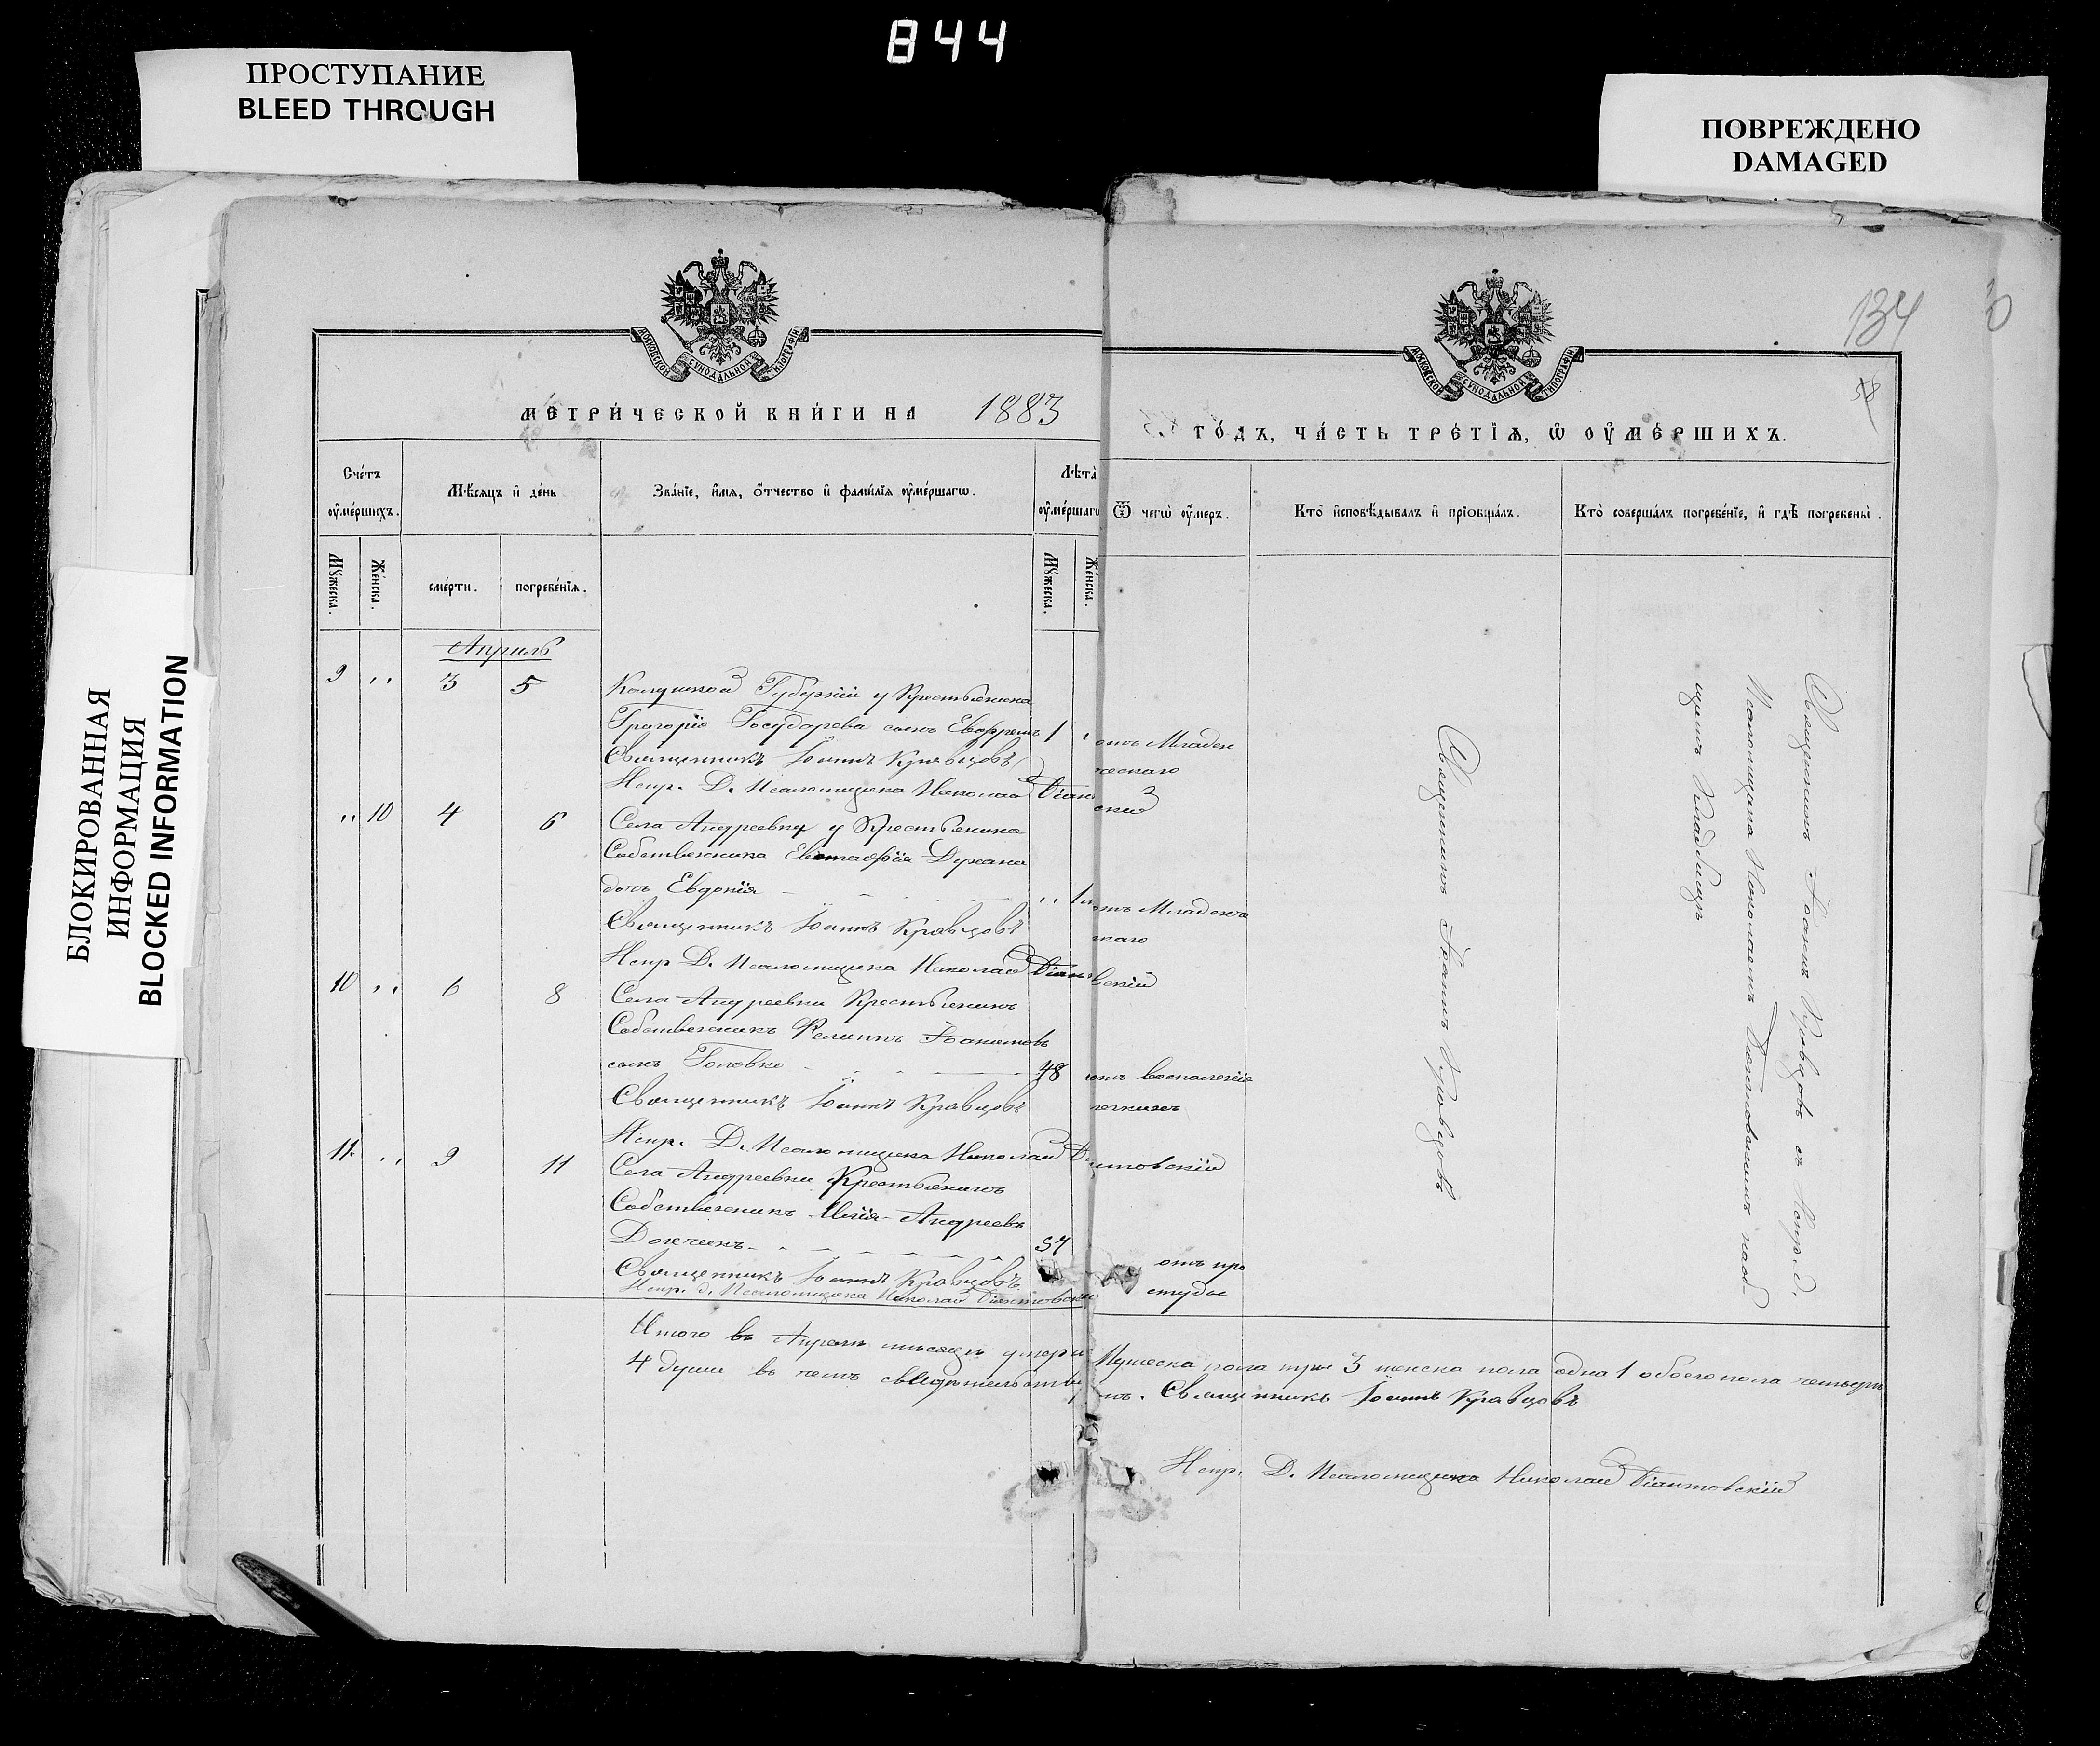 844
ПРОСТУПАНИЕ
BLEED THROUGH
ПОВРЕЖДЕНО
DAMAGED
БЛОКИРОВАННАЯ
ИНФОРМАЦИЯ
BLOCKED INFORMATION
МОСКОВСКОЙ СУНОДАЛЬНОЙ ТИПОГРАФІИ
МЕТРИЧЕСКОЙ КНИГИ НА 1883
Счетъ оумершихъ.
Мѣсяцъ и день
Званіе, имя, отчество и фамилія оумершагω.
Лѣта оумершагω
Мужеска.
Женска.
смерти.
погребенія.
Мужеска.
Женска.
Апрель
9 ,, 3 5
Губерніи у Крестьянина
Григорія Государева сынъ Евфремъ 1
Священникъ Іоаннъ Кравцовъ
Испр. Д. Псаломщика Николай
,, 10 4 6
Села Андреевки у Крестьянина
Собственника Евстафія
дочь Евдокія
Священникъ Іоаннъ Кравцовъ
Испр. Д. Псаломщика Николай
10 ,, 6 8
Села Андреевки Крестьянинъ
Собственникъ Филиппъ
сынъ Головко 48
Священникъ Іоаннъ Кравцовъ
Испр. Д. Псаломщика Николай
11. ,, 9 11
Села Андреевки Крестьянинъ
Собственникъ Илія Андреевъ
57
Священникъ Іоаннъ Кравцовъ
Испр. д. Псаломщика Николай
Итого въ Апреле месяце умерло
4 души въ чемъ свидетельствуемъ
134
58
МОСКОВСКОЙ СУНОДАЛЬНОЙ ТИПОГРАФІИ
ГОДЪ, ЧАСТЬ ТРЕТІЯ, Ѿ ОУМЕРШИХЪ.
Ѿ чегω оумеръ.
Кто исповѣдывалъ и пріобщалъ.
Кто совершалъ погребеніе, и гдѣ погребены.
отъ Младен
ческаго
отъ Младенче
скаго
отъ воспаленія
легкихъ
отъ про
студы
Священникъ Іоаннъ Кравцовъ
Священникъ Іоаннъ Кравцовъ съ Испр. д.
Псаломщика Николаемъ
щемъ Кладбище
Мужеска пола три 3 женска пола одна 1 обоего пола четыре
Священникъ Іоаннъ Кравцовъ
Испр. Д. Псаломщика Николай